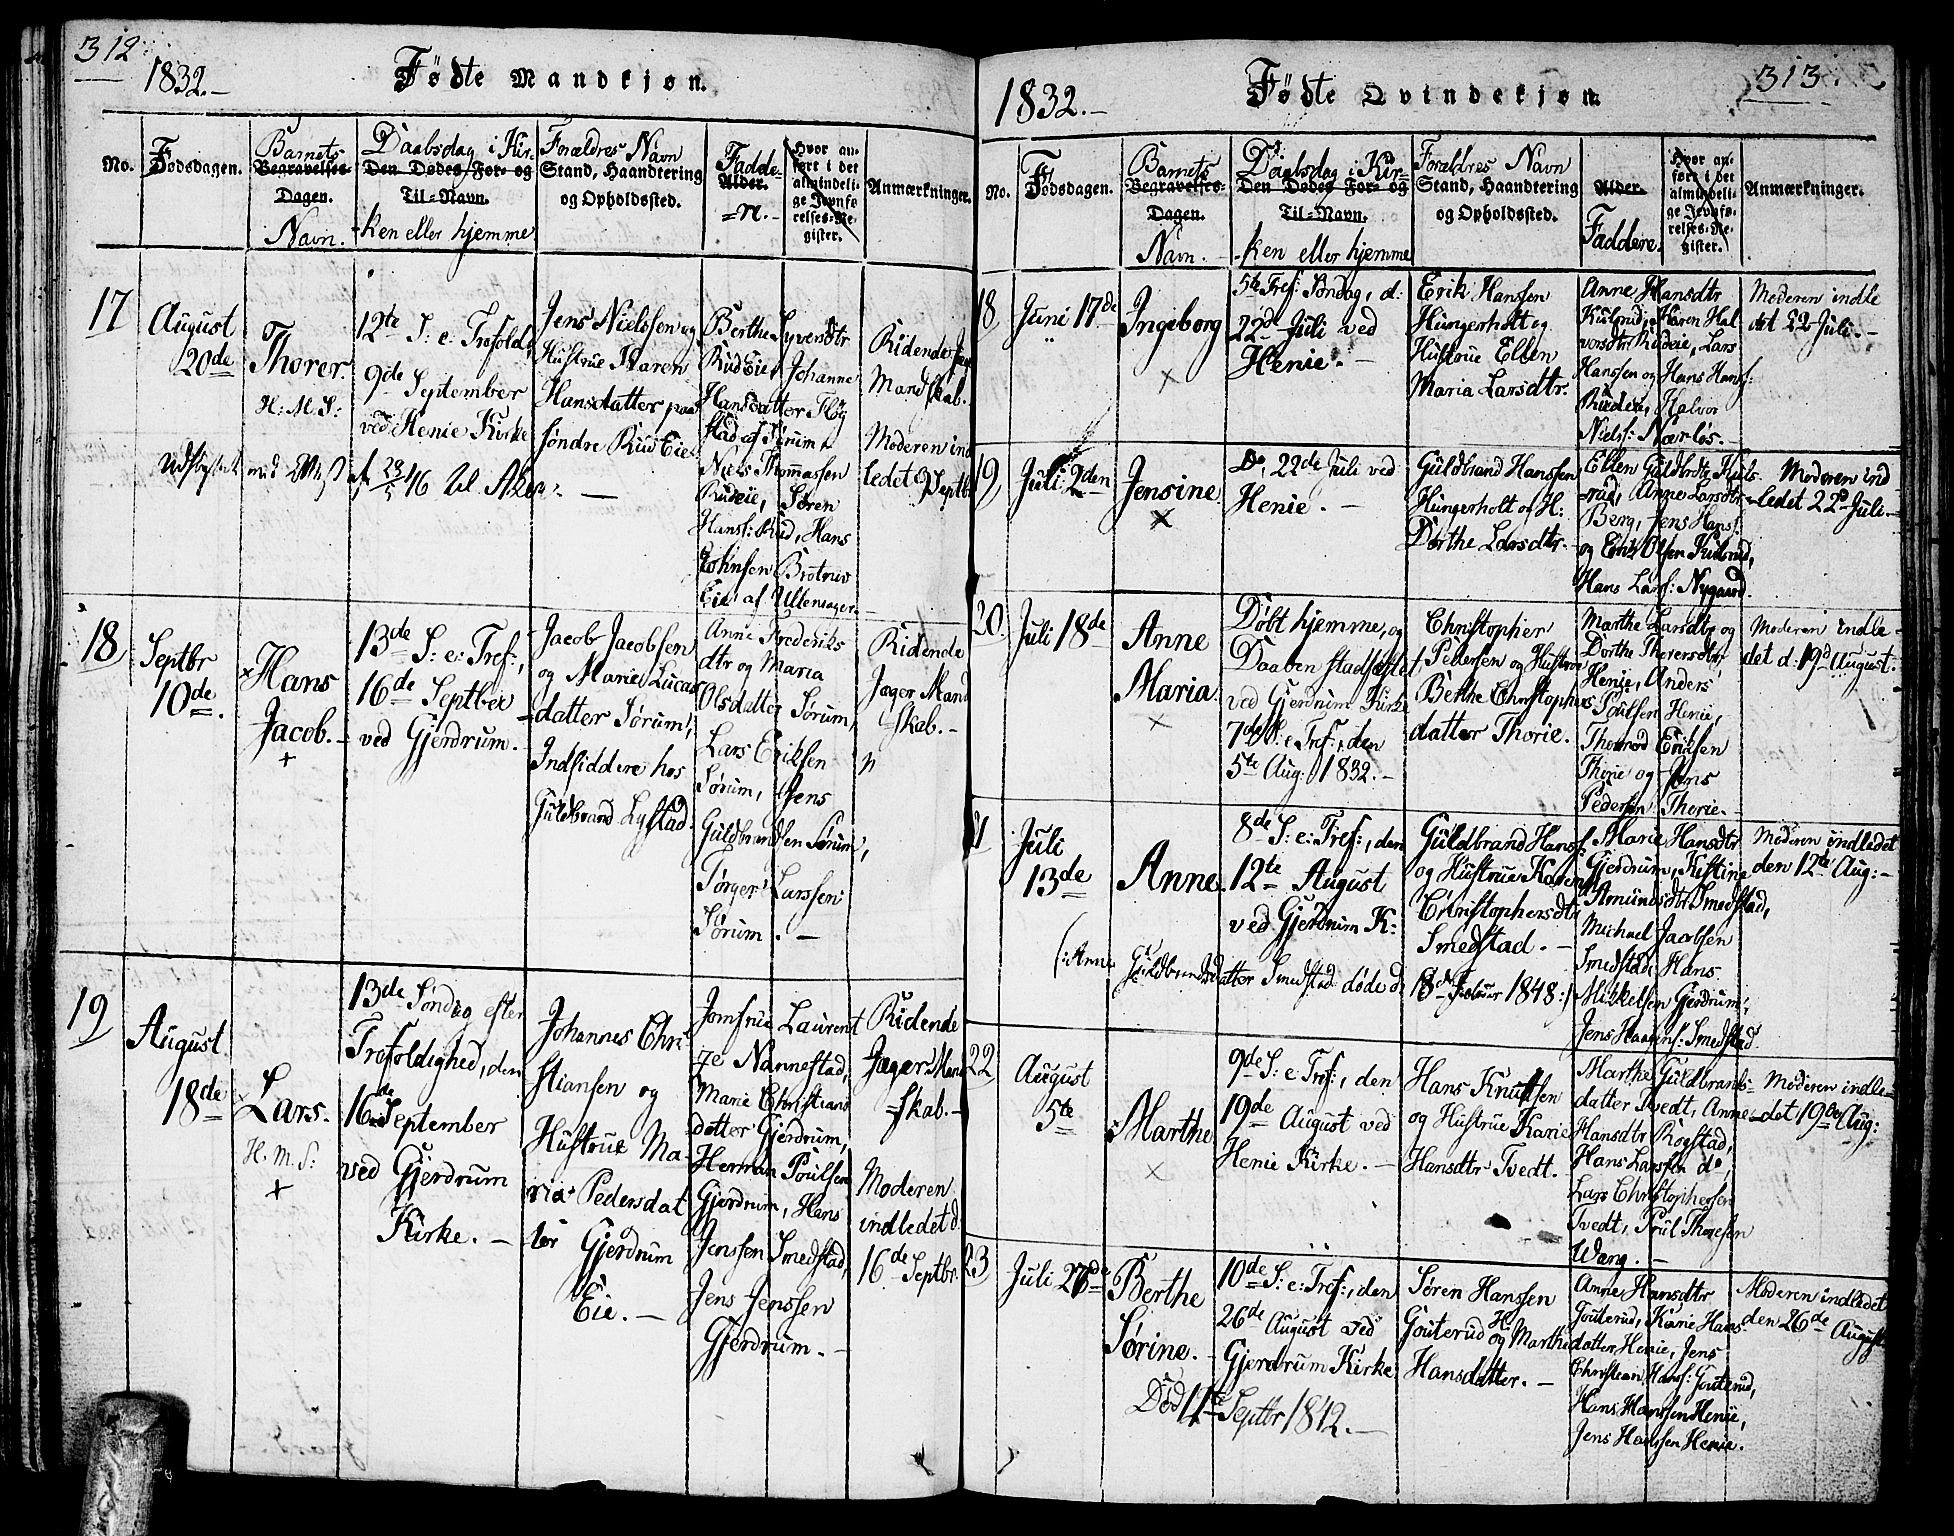 312.
1832.-
Fødte Mandkjøn.
No.
Fødsdagen.
Barnets
Begravelses-
Dagen.
Navn.
Daabsdag i Kir-
Den Dødes For- og
Til-Navn.
-ken eller hjemme
Forældres Navn
Stand, Haandtering
og Opholdssted.
Fadde-
Alder.
=re.-
Hvor an-
ført i det
almindeli-
ge Jevnfø-
relses-Re-
gister.
Anmærkninger.
17
August
20de
Thorer.
H: M. S:
12te S: e: Trefold:
9de September
ved Henie Kirke
Jens Nielsen og
Hustrue Karen
Hansdatter paa
søndre Rud Eie
Berthe Syversdtr
Rud Eie, Johanne
Hansdatter Flög
stad af Sørum,
Niels Thommassen
Rudeie, Søren
Hans: Rud, Hans
Johnsen Brotnis
Eie af Ullensager.
Ridende Jæg
Mandskab.
Moderen ind
ledet 9 Septbr
18
Septbr
10de.
Hans
Jacob.-
13de S: e: Tref:,
16de Septber
ved Gjerdrum.-
Jacob Jacobsen
og Marie Lucas
=datter Sørum,
Indsiddere hos
Guldbrand Lystad.
Anne Frederiks
dtr og Maria
Olsdatter Sørum,
Lars Eriksen
Sørum, Jens
Guldbrandsen Sørum,
Torger Larssen
Sørum.-
Ridende
Jæger Mand
=skab.-
19
August
18de
Lars.
H. M. S:
13de Søndag efter
Trefoldighed, den
16de September
ved Gjerdrum
Kirke.-
Johannes Chri
stiansen og
Hustrue Ma-
ria Pedersdat
ter Gjerdrum
Eie.-
Jomfrue Laurent
ze Nannestad,
Marie Christians
datter Gjerdrum,
Herman Poulsen
Gjerdrum, Hans
Jenssen Smedstad,
Jens Jenssen
Gjerdrum.-
Ridende
Jæger Mand
=skab.-
Moderen
indledet d.
16de Septbr.
313.
1832.-
Fødte Qvindekjøn.
No.
Fødsdagen.
Barnets
Begravelses-
Dagen.
Navn.-
Daabsdag i Kir-
Den Dødes For- og
Til-Navn.
-ken eller hjemme
Forældres Navn
Stand, Haandtering
og Opholdssted.
Alder.
Faddere.
Hvor an-
ført i det
almindeli-
ge Jevnfø-
relses-Re-
gister.
Anmærkninger.
18
Juni 17de
Ingeborg
5te Tref: Søndag, d:
22de Juli ved
Henie.-
Erik Hansen
Hungerholt og
Hustrue Ellen
Maria Larsdtr.
Anne Hansdtr
Kulsrud, Karen Hal
vorsdtr Rudeie, Lars
Hanssen og Hans Hans:
Rudeie, Halvor
Niels: Nærløs.-
Moderen indle
det 22 Juli.-
19
Juli 2den
Jensine
Do, 22de Juli ved
Henie.-
Guldbrand Hanssen
Hungerholt og H:
Dorthe Larsdtr.-
Ellen Guldbrdtr Kuls-
=rud, Anne Larsdtr
Berg, Jens Hans:
og Erik Olsen Kulsrud,
Hans Lars: Nygaard.
Moderen ind
=ledet 22d Juli.-
20.
Juli 18de
Anne
Maria.
Døbt hjemme, og
Daaben stadfæstet
ved Gjerdrum Kirke
7de S: e Tref:, den
5te Aug. 1832.-
Christopher
Pedersen og Hustrue
Berthe Christophers
datter Thorie.-
Marthe Larsdtr og
Dorthe Thorersdtr
Henie, Anders
Poulsen Henie,
Eriksen
Thorie og Jens
Pedersen Thorie.-
Moderen indle-
det d. 19d August.
21
Juli
13de
Anne
8de S: e: Tref:, den
12te August
ved Gjerdrum K:
Guldbrand Hanss:
og Hustrue Karen
Christophersdtr
Smedstad.-
(: Anne Guldbrandsdatter Smedstad døde d. 18de Februar 1848:)
Marie Hansdtr
Gjerdrum, Kistine
Amundsdtr Smedstad,
Michael Jacobsen
Smedstad, Hans
Mikkelsen Gjerdrum,
Jens Haagens: Smedstad
Moderen indledet
den 12te Aug:-
22
August
5te
Marthe
9de S: e Tref:, den
19de August ved
Henie Kirke.-
Hans Knutsen
og Hustrue Karie
Hansdtr Tvedt.
Marthe Guldbrands-
datter Tvedt, Anne
Hansdtr Rogstad,
Hans Larssen do,
Lars Christophersen
Tvedt, Poul Thoresen
Wang.-
Moderen indle-
=det 19de Aug:
23
Juli 26de
Berthe
Sørine.-
10de S: e: Tref:, den
26de August ved
Gjerdrum Kirke
Søren Hanssen
Gouterud og H. Marthe
Hansdatter.-
Død 11te Septbr 1842.-
Anne Hansdtr
Gouterud, Karie Hans-
datter Henie, Jens
Christian Hans: Gouterud,
Hans Hanssen Henie,
Jens Hanssen Henie.
Moderen indledet
den 26de August